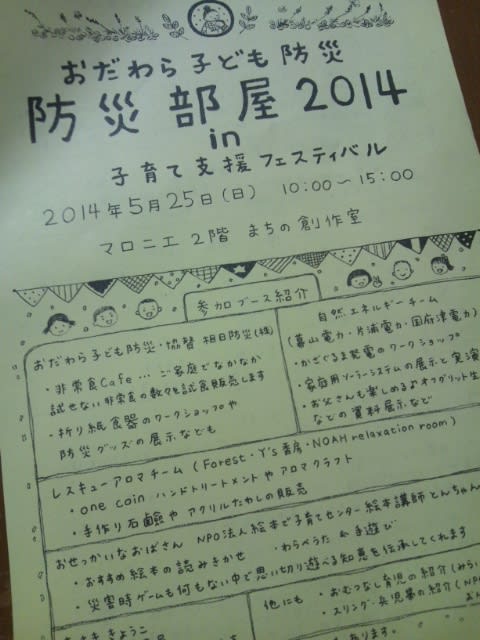 おだわら子ども防災
防災部屋2014
in
子育て支援フェスティバル
2014年5月25日(日) 10:00〜15:00
マロニエ2階 まちの創作室
参加ブース紹介
おだわら子ども防災・協賛 相日防災(株)
・非常食Cafe…ご家庭でなかなか
試せない非常食の数々を試食販売します
・折り紙食器のワークショップや
防災グッズの展示なども
自然エネルギーチーム
(曽山電力・片浦電力・国府津電力)
・かざぐるま発電のワークショップ
・家庭用ソーラーシステムの展示と実演
・お父さんも楽しめるおオフグリット生
などの資料展示など
レスキューアロマチーム (Forest・Y's書房・NOAH relaxation room)
・one coin ハンドトリートメントやアロマクラフト
・手作り石鹸やアクリルたわしの販売
おせっかいなおばさん NPO法人絵本で子育てセンター絵本講師とんちゃん
・おすすめ絵本の読みきかせ ・わらべうた&手遊び
・災害時ゲームも何もない中で思い切り遊べる知恵を伝承してくれます
他にも ・おむつなし育児の紹介(みらい
・スリング・兵児帯の紹介(NPO